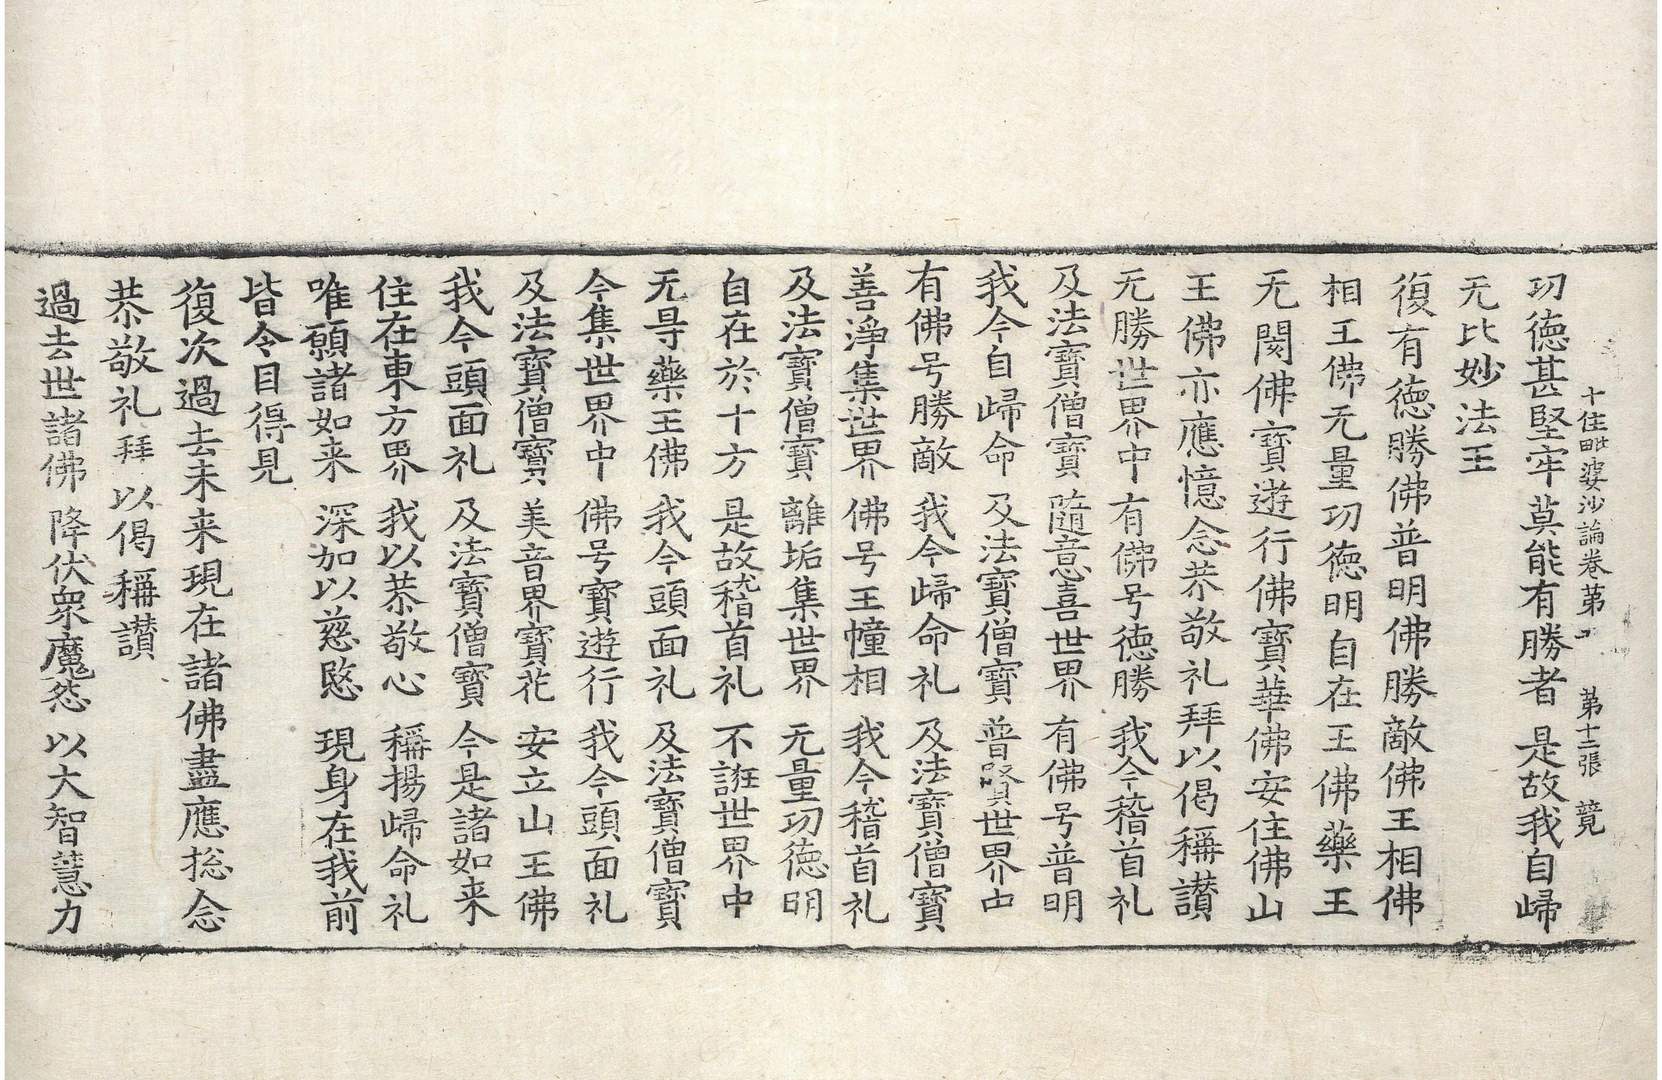 十住毗婆沙論卷第 第十二張 竟
功德甚堅牢 莫能有勝者 是故我自歸
无比妙法王
復有德勝佛普明佛勝敵佛王相佛
相王佛无量功德明自在王佛藥王
无閡佛寶遊行佛寶華佛安住佛山
王佛亦應憶念恭敬礼拜以偈稱讃
无勝世界中 有佛号德勝 我今稽首礼
及法寶僧寶 隨意喜世界 有佛号普明
我今自歸命 及法寶僧寶 普賢世界中
有佛号勝敵 我今歸命礼 及法寶僧寶
善淨集世界 佛号王幢相 我今稽首礼
及法寶僧寶 離垢集世界 无量功德明
自在於十方 是故稽首礼 不誑世界中
无㝵藥王佛 我今頭面礼 及法寶僧寶
今集世界中 佛号寶遊行 我今頭面礼
及法寶僧寶 美音界寶花 安立山王佛
我今頭面礼 及法寶僧寶 今是諸如来
住在東方界 我以恭敬心 稱揚歸命礼
唯願諸如来 深加以慈愍 現身在我前
皆令目得見
復次過去未来現在諸佛盡應捴念
恭敬礼拜以偈稱讃
過去世諸佛 降伏衆魔怨 以大智慧力